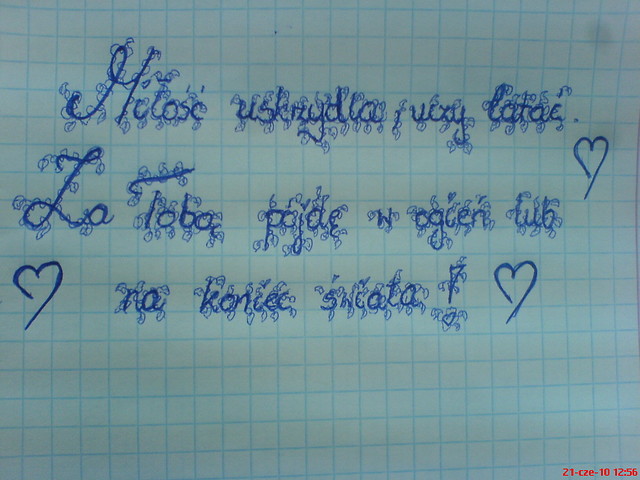 Miłość uskrzydla, uczy latać.
Za Tobą pójdę w ogień lub
na koniec świata!
21-cze-10 12:56